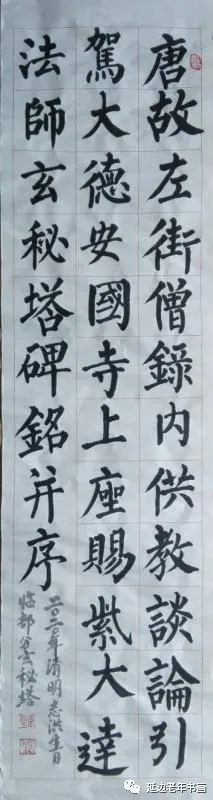 唐故左街僧錄内供教談論引
駕大德安國寺上座賜紫大達
法師玄秘塔碑銘并序
二〇二〇年清明志洪生日
临部分玄秘塔
延边老年书画